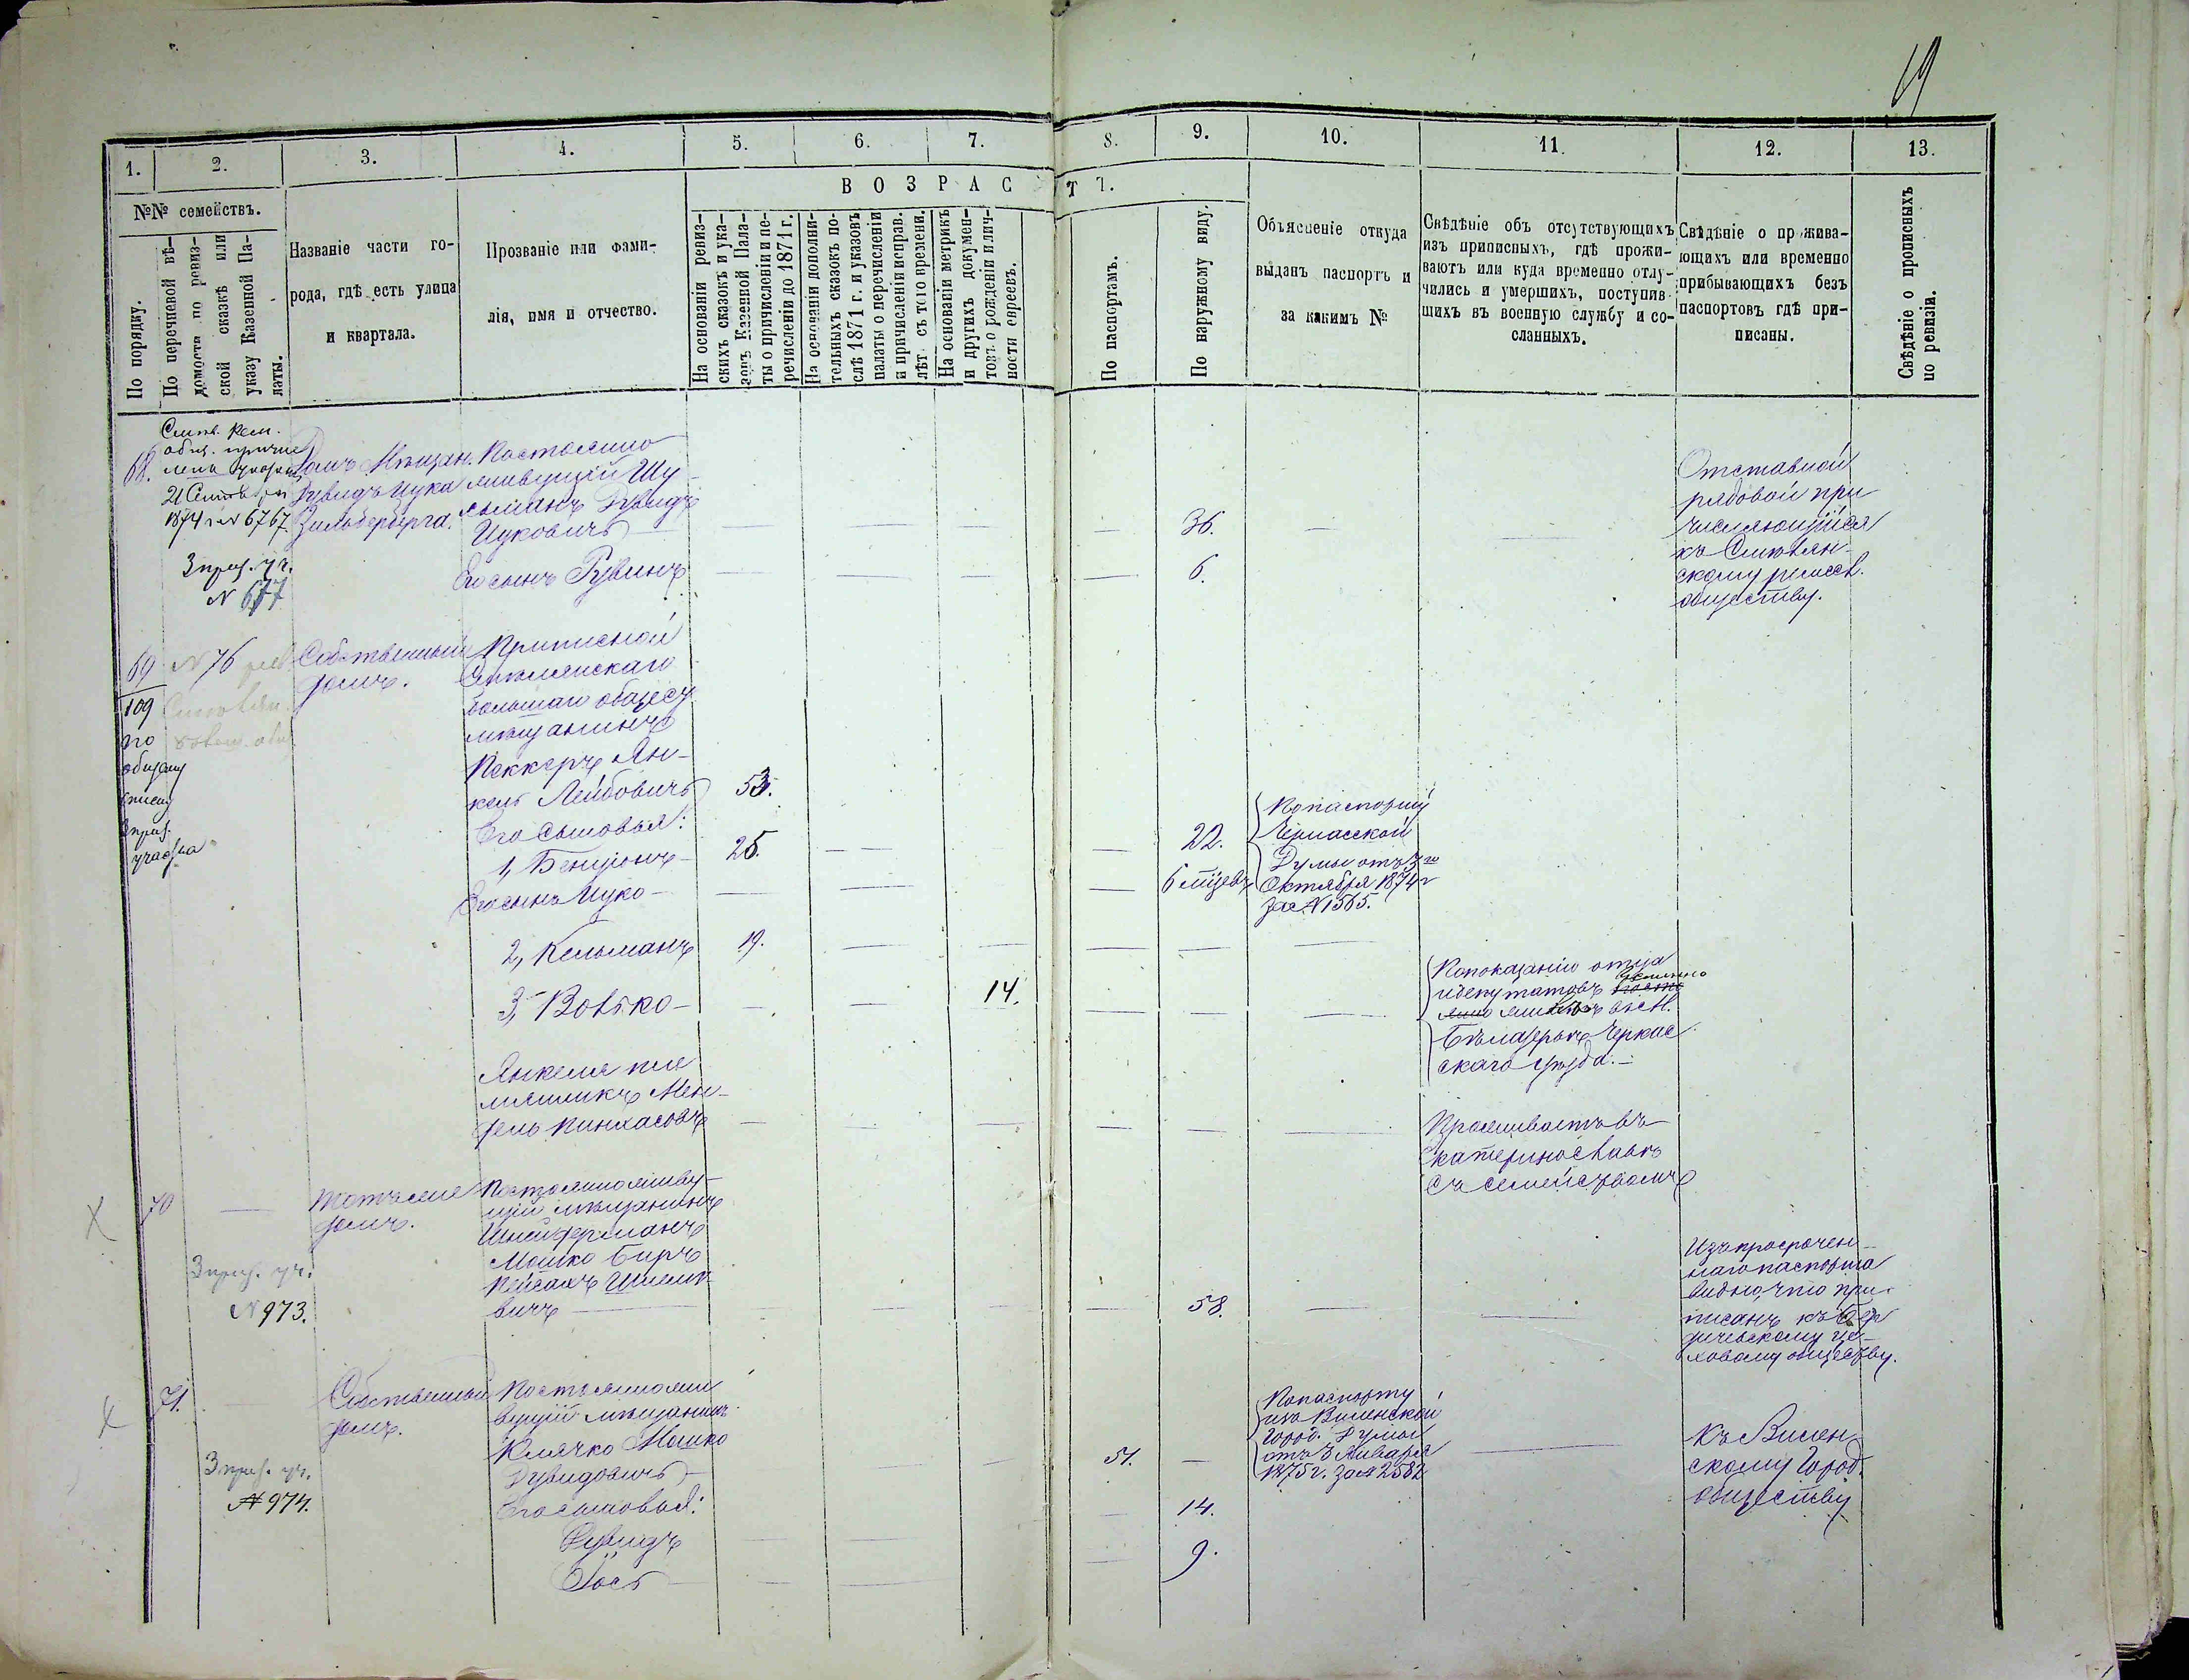 19
1. 2. 3. 4. 5. 6. 7. 8. 9. 10. 11. 12. 13.
№№ семействъ.
ВОЗРАСТЪ.
По порядку.
По перечневой вѣ-
домости по ревиз-
ской сказкѣ или
указу Казенной Па-
латы.
Названіе части го-
рода, гдѣ есть улица
и квартала.
Прозваніе или фами-
лія, имя и отчество.
На основаніи ревиз-
скихъ сказокъ и ука-
зовъ Казенной Пала-
ты о причисленіи и пе-
речисленіи до 1871 г.
На основаніи дополни-
тельныхъ сказокъ по-
слѣ 1871 г. и указовъ
палаты о перечисленіи
и причисленіи исправ.
лѣт. съ того времени.
На основаніи метрикъ
и другихъ докумен-
товъ о рожденіи и лич-
ности евреевъ.
По паспортамъ.
По наружному виду.
Объясненіе откуда
выданъ паспортъ и
за какимъ №
Свѣдѣніе объ отсутствующихъ
изъ приписныхъ, гдѣ прожи-
ваютъ или куда временно отлу-
чились и умершихъ, поступив-
шихъ въ военную службу и со-
сланныхъ.
Свѣдѣніе о прожива-
ющихъ или временно
прибывающихъ безъ
паспортовъ гдѣ при-
писаны.
Свѣдѣніе о прописныхъ
по ревизіи.
68.
21
1874 г. № 6767
3 приз. уч.
№ 677
Домъ Мѣщан.
Дувидъ Ицка
Зильберберга.
Постоянно
живущій Шу-
Дувидъ
Ицковичъ
36.
Его сынъ Рувинъ
6.
Отставной
рядовой при
числяющійся
къ Смѣлян-
скому ремесл.
обществу.
69
109
по
общему
списку
3 приз.
участка
№ 76
Собственный
домъ.
Приписной
Смѣлянскаго
большаго общест.
мѣщанинъ
Пеккеръ Ян-
кель Лейбовичъ
53.
Его сыновья:
1, Бенціонъ
25.
22.
Его сынъ Ицко
6 мѣсяцевъ
По паспорту
Черкасской
Думы отъ 3го
Октября 1874 г
за № 1565.
2, Кельманъ
19.
3, Вовко
14.
По показанію отца
и депутатовъ
Бѣлазерьѣ Черкас
скаго уѣзда.
Янкеля пле
мянникъ Мен-
дель Пинхасовъ
Проживаетъ въ
Екатеринославѣ
съ семействомъ
70
Тотъ же
домъ.
3 приз. уч.
№ 973.
Постоянно живу-
щій мѣщанинъ
Мошко Беръ
Пейсахъ Шмеле-
вичъ
58.
Изъ просрочен-
наго паспорта
видно, что при-
писанъ къ Бер
дичевскому це-
ховому обществу.
71.
Собственный
домъ.
3 приз. уч.
№ 974.
Постоянно жи
вущій мѣщанинъ
Клячко Мошко
Дувидовичъ
51.
По паспорту
изъ Виленской
Город. Думы
отъ 3 Января
1875 г. за № 2582
Къ Вилен-
скому Город.
обществу
Его сыновья:
Дувидъ
14.
Іось
9.